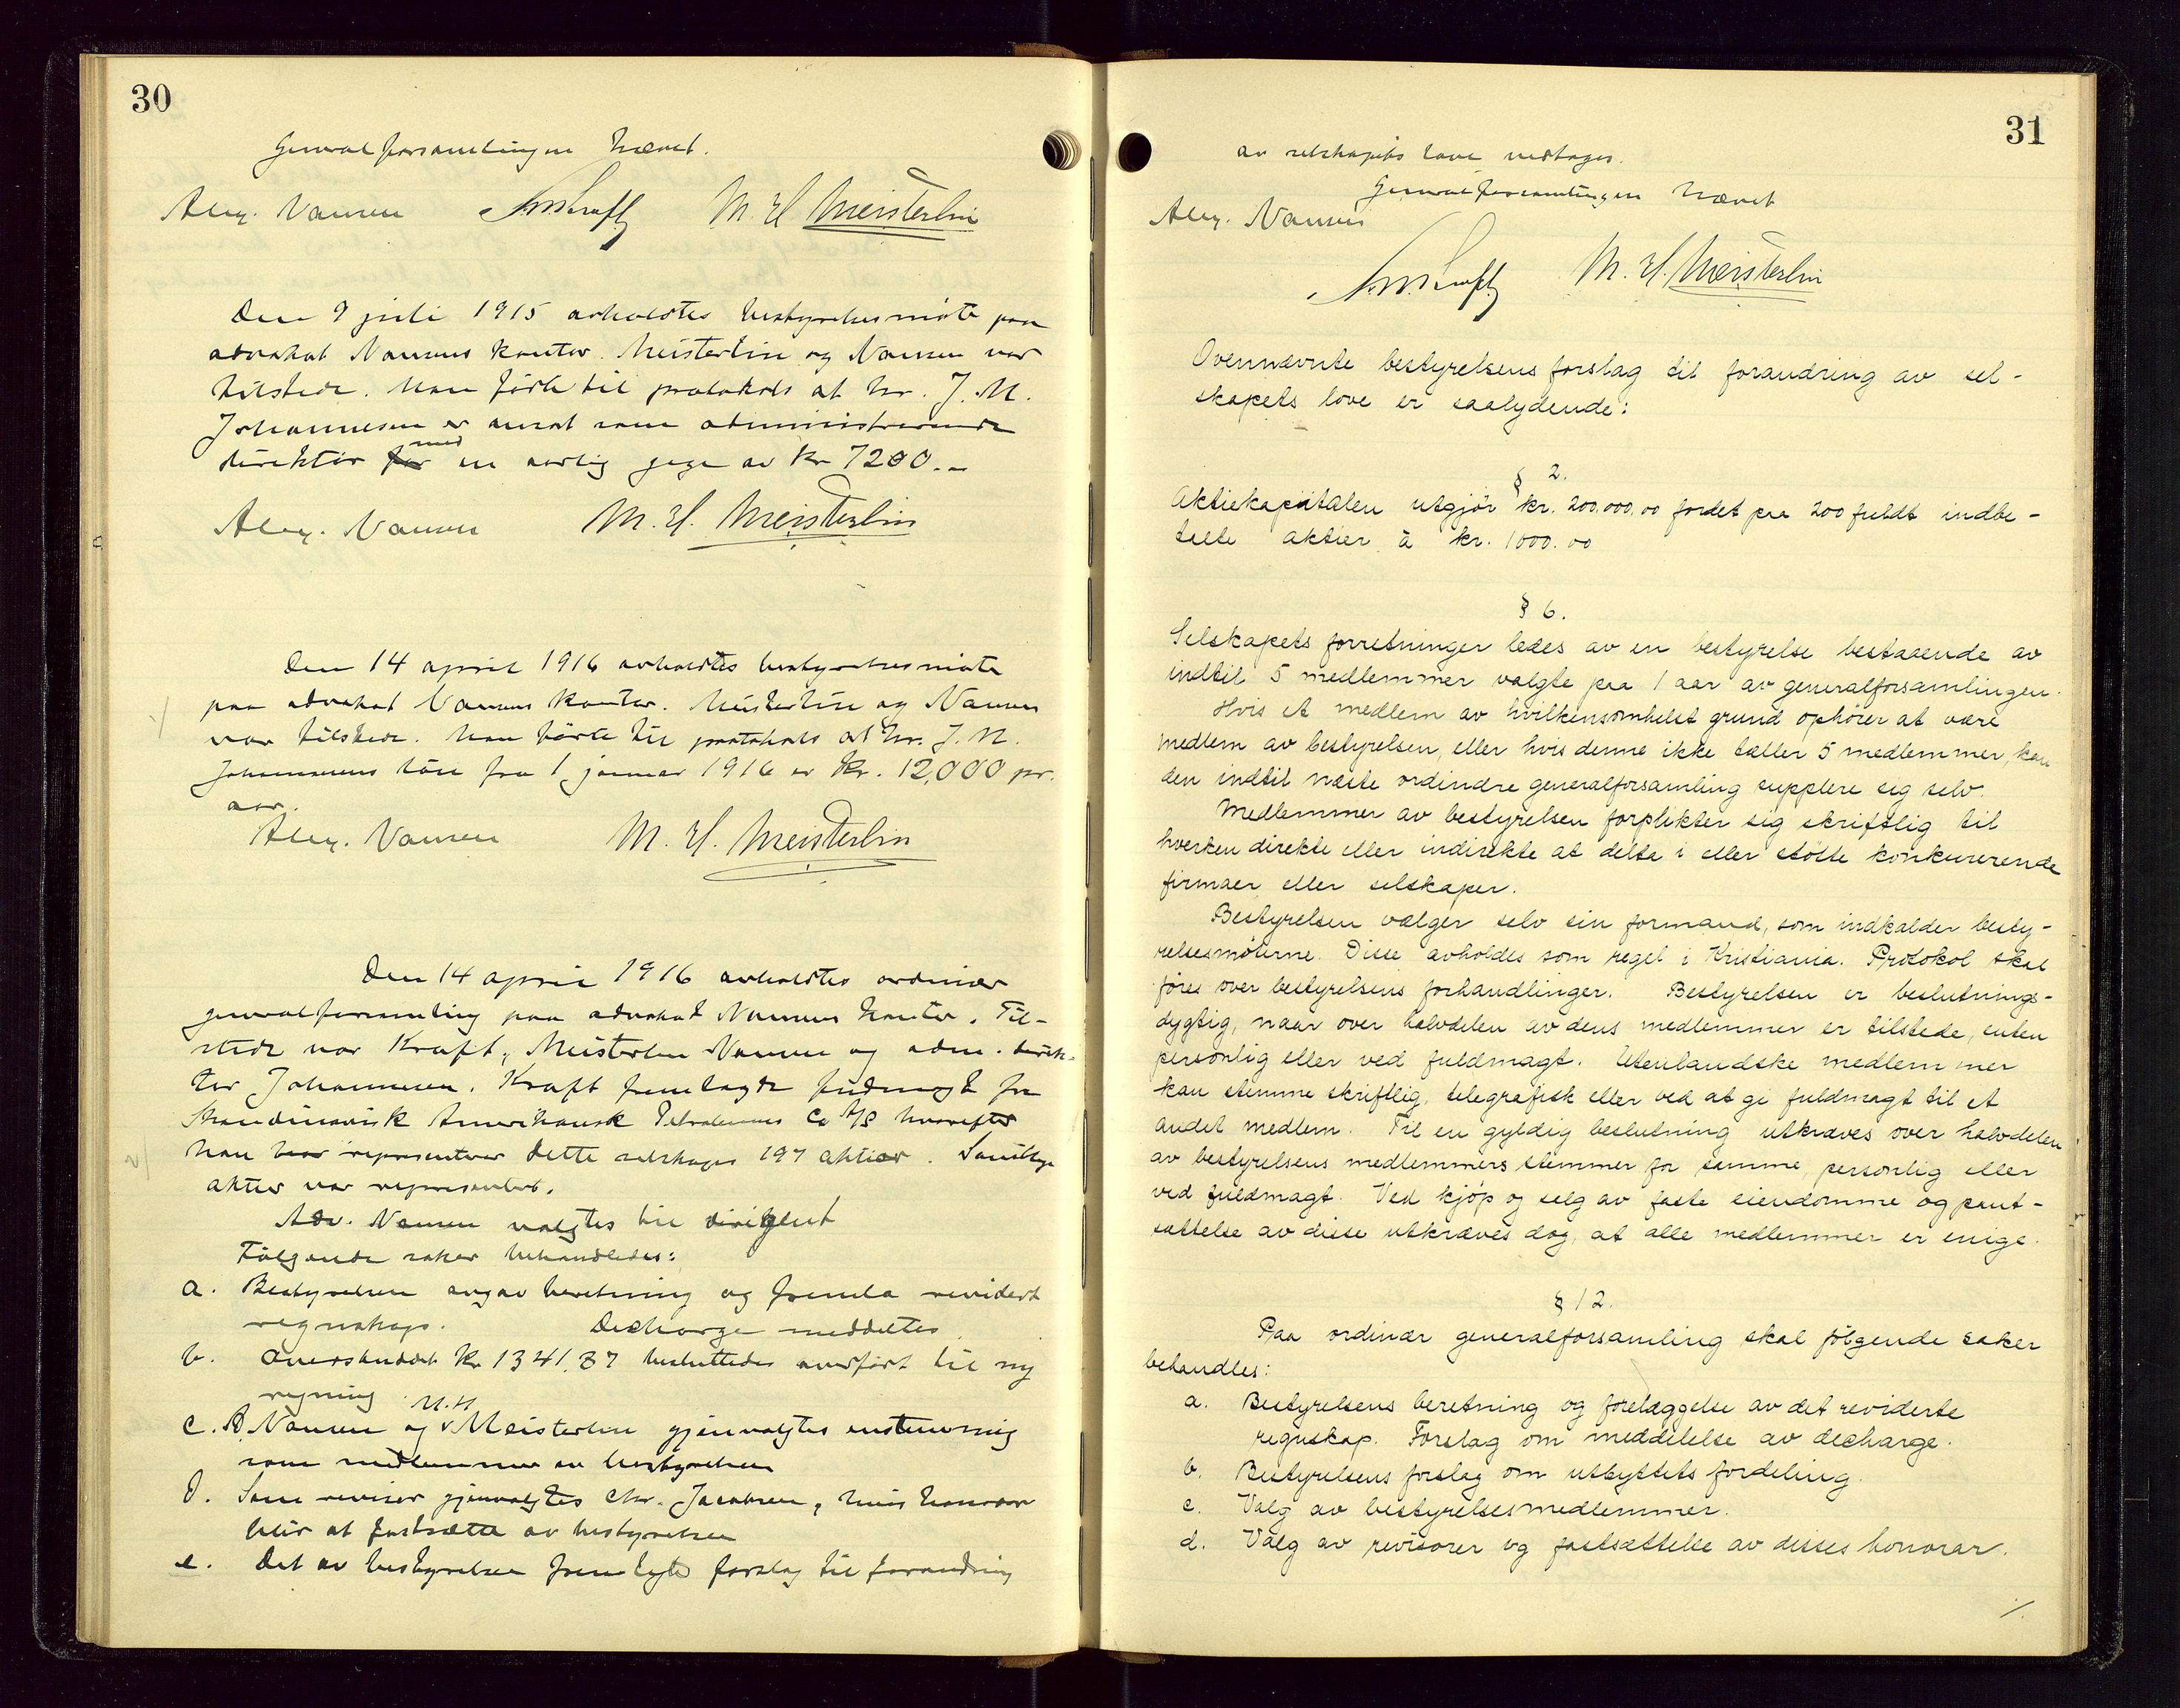 30
Generalforsamlingen hævet.
Alex. Nansen M. H. Meisterlin
Den 9 juli 1915 avholdtes bestyrelsesmöte paa
advokat Nansens kontor. Meisterlin og Nansen var
tilstede. Man förte til protokols at hr. J. M.
Johannesen er ansat som administrerende
direktör for med en aarlig gage av Kr 7200.-
Alex. Nansen M. H. Meisterlin
Den 14 april 1916 avholdtes bestyrelsesmöte
paa advokat Nansens kontor. Meisterlin og Nansen
var tilstede. Man förte til protokols at hr. J. M.
Johannesens lön fra 1 januar 1916 er Kr. 12,000 pr.
aar.
Alex. Nansen M. H. Meisterlin
Den 14 april 1916 avholdtes ordinær
generalforsamling paa advokat Nansens kontor. Til-
stede var Kraft, Meisterlin Nansen og adm. direk-
tör Johannesen. Kraft fremlagde fuldmagt fra
Skandinavisk Amerikansk Petroleums Co A/S hvorefter
han representerer dette selskaps 197 aktier. Samtlige
aktier var representert.
Adv. Nansen valgtes til dirigent
Følgende saker behandledes:
a. Bestyrelsen avgav beretning og fremla revidert
regnskap. Decharge meddeltes.
b. Overskuddet Kr 1341,87 besluttedes overfört til ny
regning.
c. A. Nansen og M.H. Meisterlin gjenvalgtes enstemmig
som medlemmer av bestyrelsen
d. Som revisor gjenvalgtes Chr. Jacobsen, hvis honorar
blir at fastsætte av bestyrelsen
e. Det av bestyrelsen fremlagte forslag til forandring
31
av selskapets love vedtages.
Generalforsamlingen hævet
Alex. Nansen
M. H. Meisterlin
Ovennævnte bestyrelsens forslag til forandring av sel-
skapets love er saalydende:
§ 2.
Aktiekapitalen utgjör kr. 200,000.00 fordelt paa 200 fuldt indbe-
talte aktier à kr. 1000.00
§ 6.
Selskapets forretninger ledes av en bestyrelse bestaaende av
indtil 5 medlemmer valgte paa 1 aar av generalforsamlingen.
Hvis et medlem av hvilkensomhelst grund ophörer at være
medlem av bestyrelsen, eller hvis denne ikke tæller 5 medlemmer, kan
den indtil næste ordinære generalforsamling supplere sig selv.
Medlemmer av bestyrelsen forplikter sig skriftlig til
hverken direkte eller indirekte at delta i eller stötte konkurerende
firmaer eller selskaper.
Bestyrelsen vælger selv sin formand, som indkalder besty-
relsesmöterne. Disse avholdes som regel i Kristiania. Protokol skal
föres over bestyrelsens forhandlinger. Bestyrelsen er beslutnings-
dygtig, naar over halvdelen av dens medlemmer er tilstede, enten
personlig eller ved fuldmagt. Utenlandske medlemmer
kan stemme skriftlig, telegrafisk eller ved at gi fuldmagt til et
andet medlem. Til en gyldig beslutning utkræves over halvdelen
av bestyrelsens medlemmers stemmer for samme, personlig eller
ved fuldmagt. Ved kjöp og salg av faste eiendomme og pant-
sættelse av disse utkræves dog, at alle medlemmer er enige.
§ 12.
Paa ordinær generalforsamling skal fölgende saker
behandles:
a. Bestyrelsens beretning og forelæggelse av det reviderte
regnskap. Forslag om meddelelse av decharge.
b. Bestyrelsens forslag om utbyttets fordeling.
c. Valg av bestyrelsesmedlemmer.
d. Valg av revisorer og fastsættelse av disses honorar.